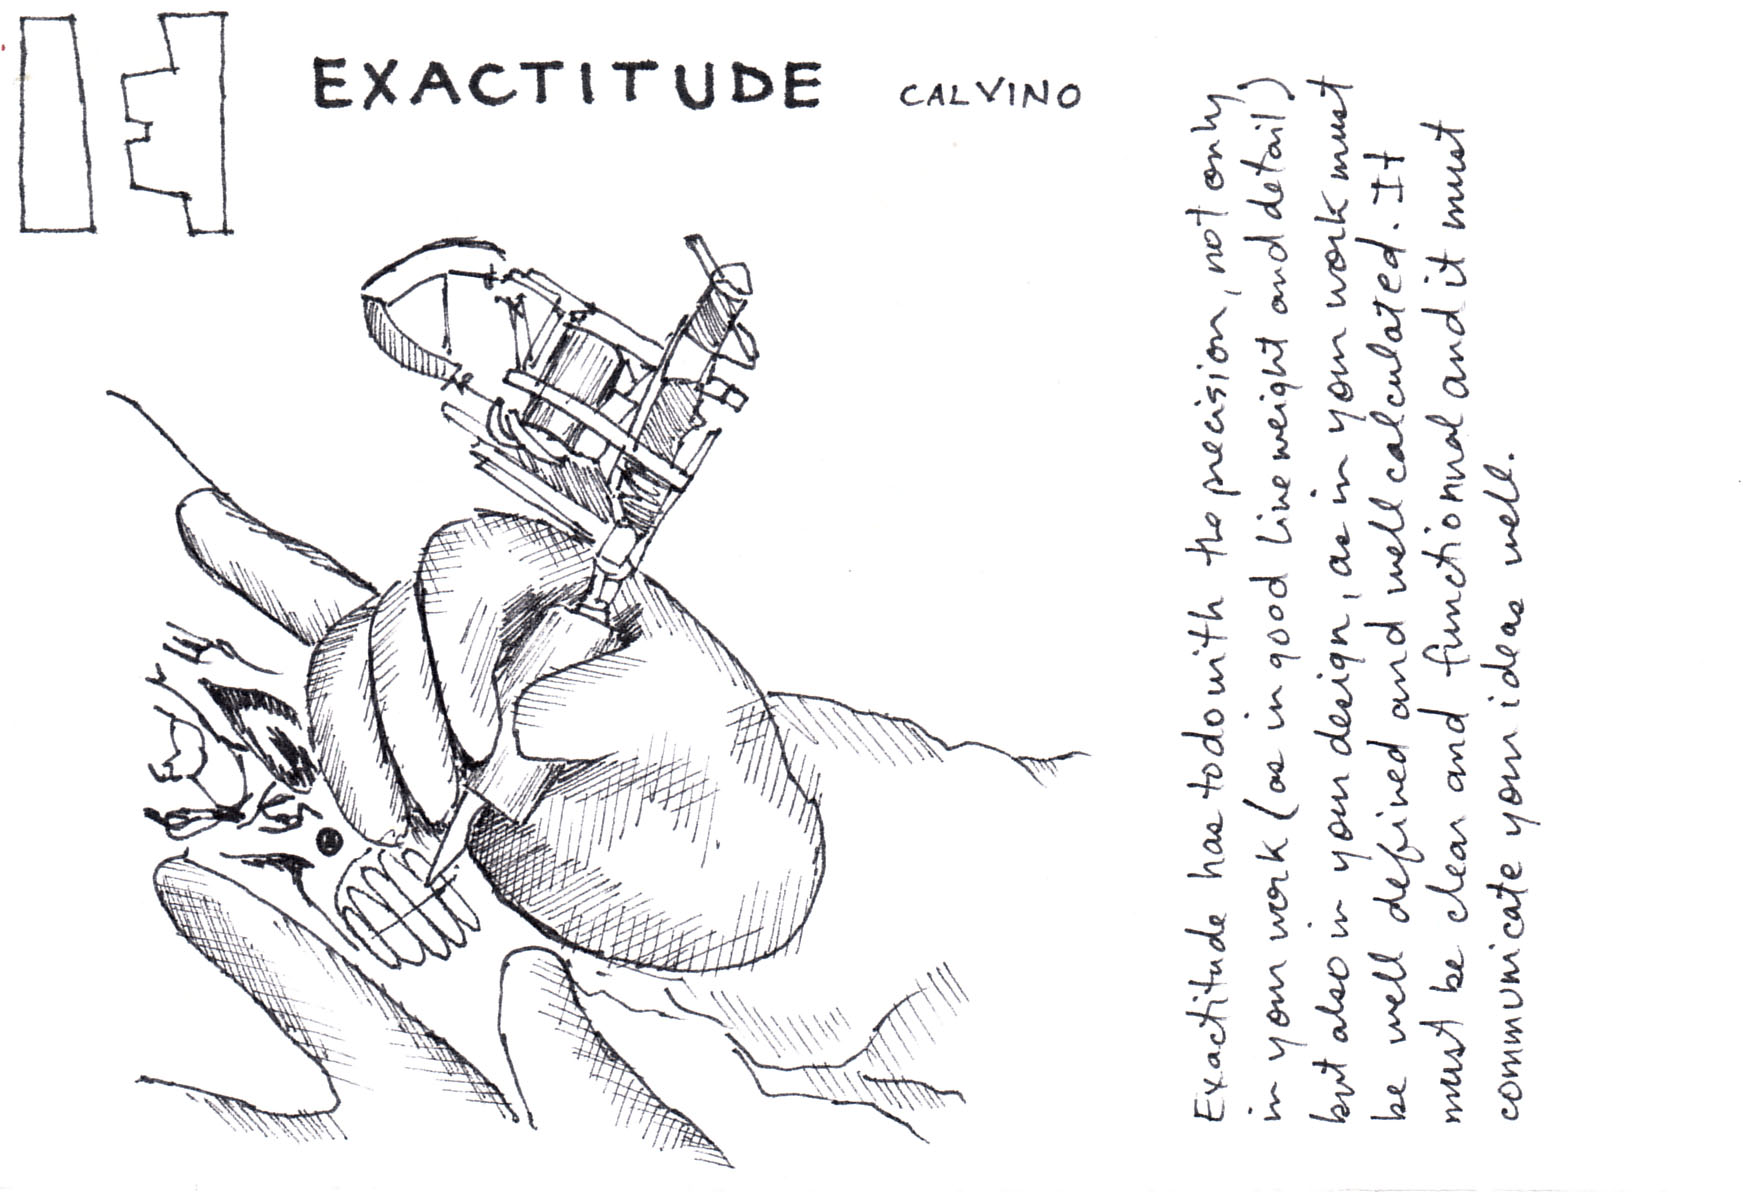 EXACTITUDE CALVINO
Exactitude has to do with the precision, not only
in your work (as in good line weight and detail)
but also in your design, as in your work must
be well defined and well calculated. It
must be clear and functional and it must
communicate your ideas well.